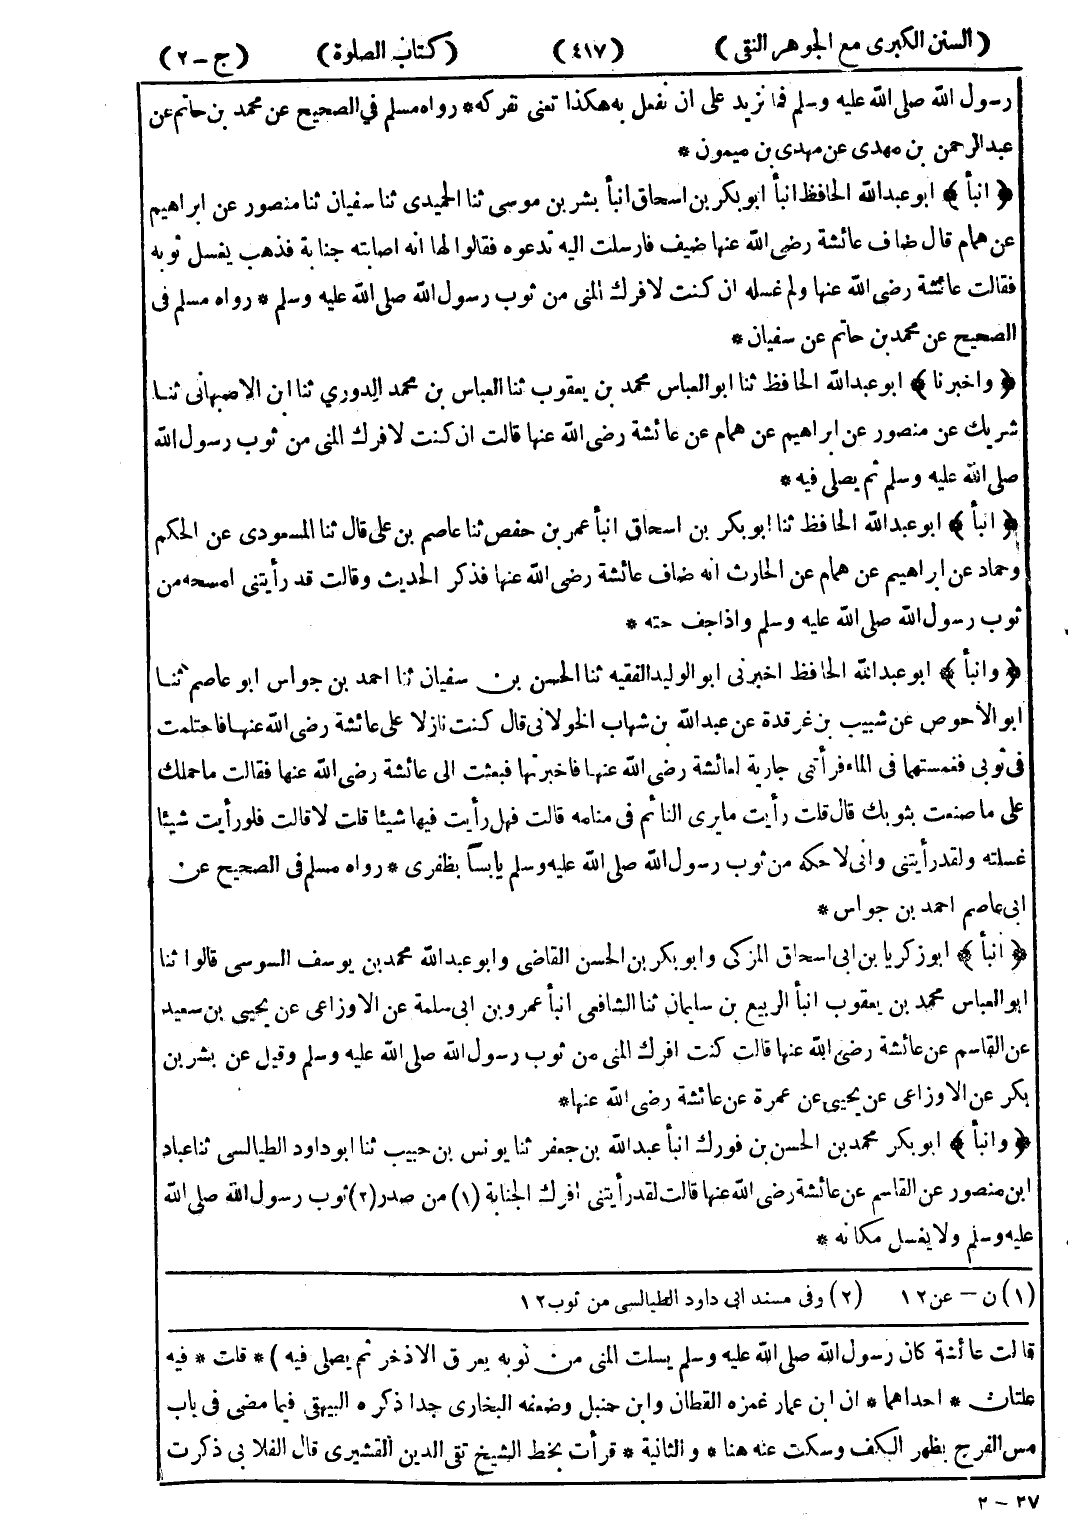 (السنن الكبرى مع الجوهر النقى) (٤١٧) (كتاب الصلوة) (ج-٢)
رسول الله صلى الله عليه وسلم فما نزيد على ان نفعل به هكذا تعنى نفركه * رواه مسلم في الصحيح عن محمد بن حاتم عن
عبد الرحمن بن مهدى عن مهدى بن ميمون *
﴿ انبأ ﴾ ابو عبد الله الحافظ انبأ ابوبكر بن اسحاق انبأ بشر بن موسى ثنا الحميدى ثنا سفيان ثنا منصور عن ابراهيم
عن همام قال ضاف عائشة رضى الله عنها ضيف فارسلت اليه تدعوه فقالوا لها انه اصابته جنابة فذهب يغسل ثوبه
فقالت عائشة رضى الله عنها ولم غسله ان كنت لافرك المنى من ثوب رسول الله صلى الله عليه وسلم * رواه مسلم فى
الصحيح عن محمد بن حاتم عن سفيان *
﴿ واخبرنا ﴾ ابو عبد الله الحافظ ثنا ابو العباس محمد بن يعقوب ثنا العباس بن محمد الدوري ثنا ابن الاصبهانى ثنا
شريك عن منصور عن ابراهيم عن همام عن عائشة رضى الله عنها قالت ان كنت لافرك المنى من ثوب رسول الله
صلى الله عليه وسلم ثم يصلى فيه *
﴿ انبأ ﴾ ابو عبد الله الحافظ ثنا ابوبكر بن اسحاق انبأ عمر بن حفص ثنا عاصم بن على قال ثنا المسعودى عن الحكم
وحماد عن ابراهيم عن همام عن الحارث انه ضاف عائشة رضى الله عنها فذكر الحديث وقالت قد رأيتنى امسحه من
ثوب رسول الله صلى الله عليه وسلم واذا جف حته *
﴿ وانبأ ﴾ ابو عبد الله الحافظ اخبرنى ابو الوليد الفقيه ثنا الحسن بن سفيان ثنا احمد بن جواس ابو عاصم ثنا
ابو الاحوص عن شبيب بن غرقدة عن عبد الله بن شهاب الخولانى قال كنت نازلا على عائشة رضى الله عنها فاحتلمت
فى ثوبى فغمستهما فى الماء فرأتنى جارية لعائشة رضى الله عنها فاخبرتها فبعثت الى عائشة رضى الله عنها فقالت ما حملك
على ما صنعت بثوبك قال قلت رأيت ما يرى النائم فى منامه قالت فهل رأيت فيها شيئا قلت لا قالت فلو رأيت شيئا
غسلته ولقد رأيتنى وانى لاحكه من ثوب رسول الله صلى الله عليه وسلم يابسا بظفرى * رواه مسلم فى الصحيح عن
ابى عاصم احمد بن جواس *
﴿ انبأ ﴾ ابو زكريا بن ابى اسحاق المزكى وابو بكر بن الحسن القاضى وابو عبد الله محمد بن يوسف السوسى قالوا ثنا
ابو العباس محمد بن يعقوب انبأ الربيع بن سليمان ثنا الشافعى انبأ عمرو بن ابى سلمة عن الاوزاعى عن يحيى بن سعيد
عن القاسم عن عائشة رضى الله عنها قالت كنت افرك المنى من ثوب رسول الله صلى الله عليه وسلم وقيل عن بشر بن
بكر عن الاوزاعى عن يحيى عن عمرة عن عائشة رضى الله عنها *
﴿ وانبأ ﴾ ابو بكر محمد بن الحسن بن فورك انبأ عبد الله بن جعفر ثنا يونس بن حبيب ثنا ابو داود الطيالسى ثنا عباد
ابن منصور عن القاسم عن عائشة رضى الله عنها قالت لقد رأيتنى افرك الجنابة (١) من صدر (٢) ثوب رسول الله صلى الله
عليه وسلم ولا يغسل مكانه *
(١) ن - عن ١٢ (٢) وفى مسند ابى داود الطيالسى من ثوب ١٢
قالت عائشة كان رسول الله صلى الله عليه وسلم يسلت المنى من ثوبه بعرق الاذخر ثم يصلى فيه) * قلت * فيه
علتان * احداهما * ان ابن عمار غمزه القطان وابن حنبل وضعفه البخارى جدا ذكره البيهقى فيما مضى فى باب
مس الفرج بظهر الكف وسكت عنه هنا * والثانية * قرأت بخط الشيخ تقى الدين القشيرى قال الفلابى ذكرت
٢ - ٢٧